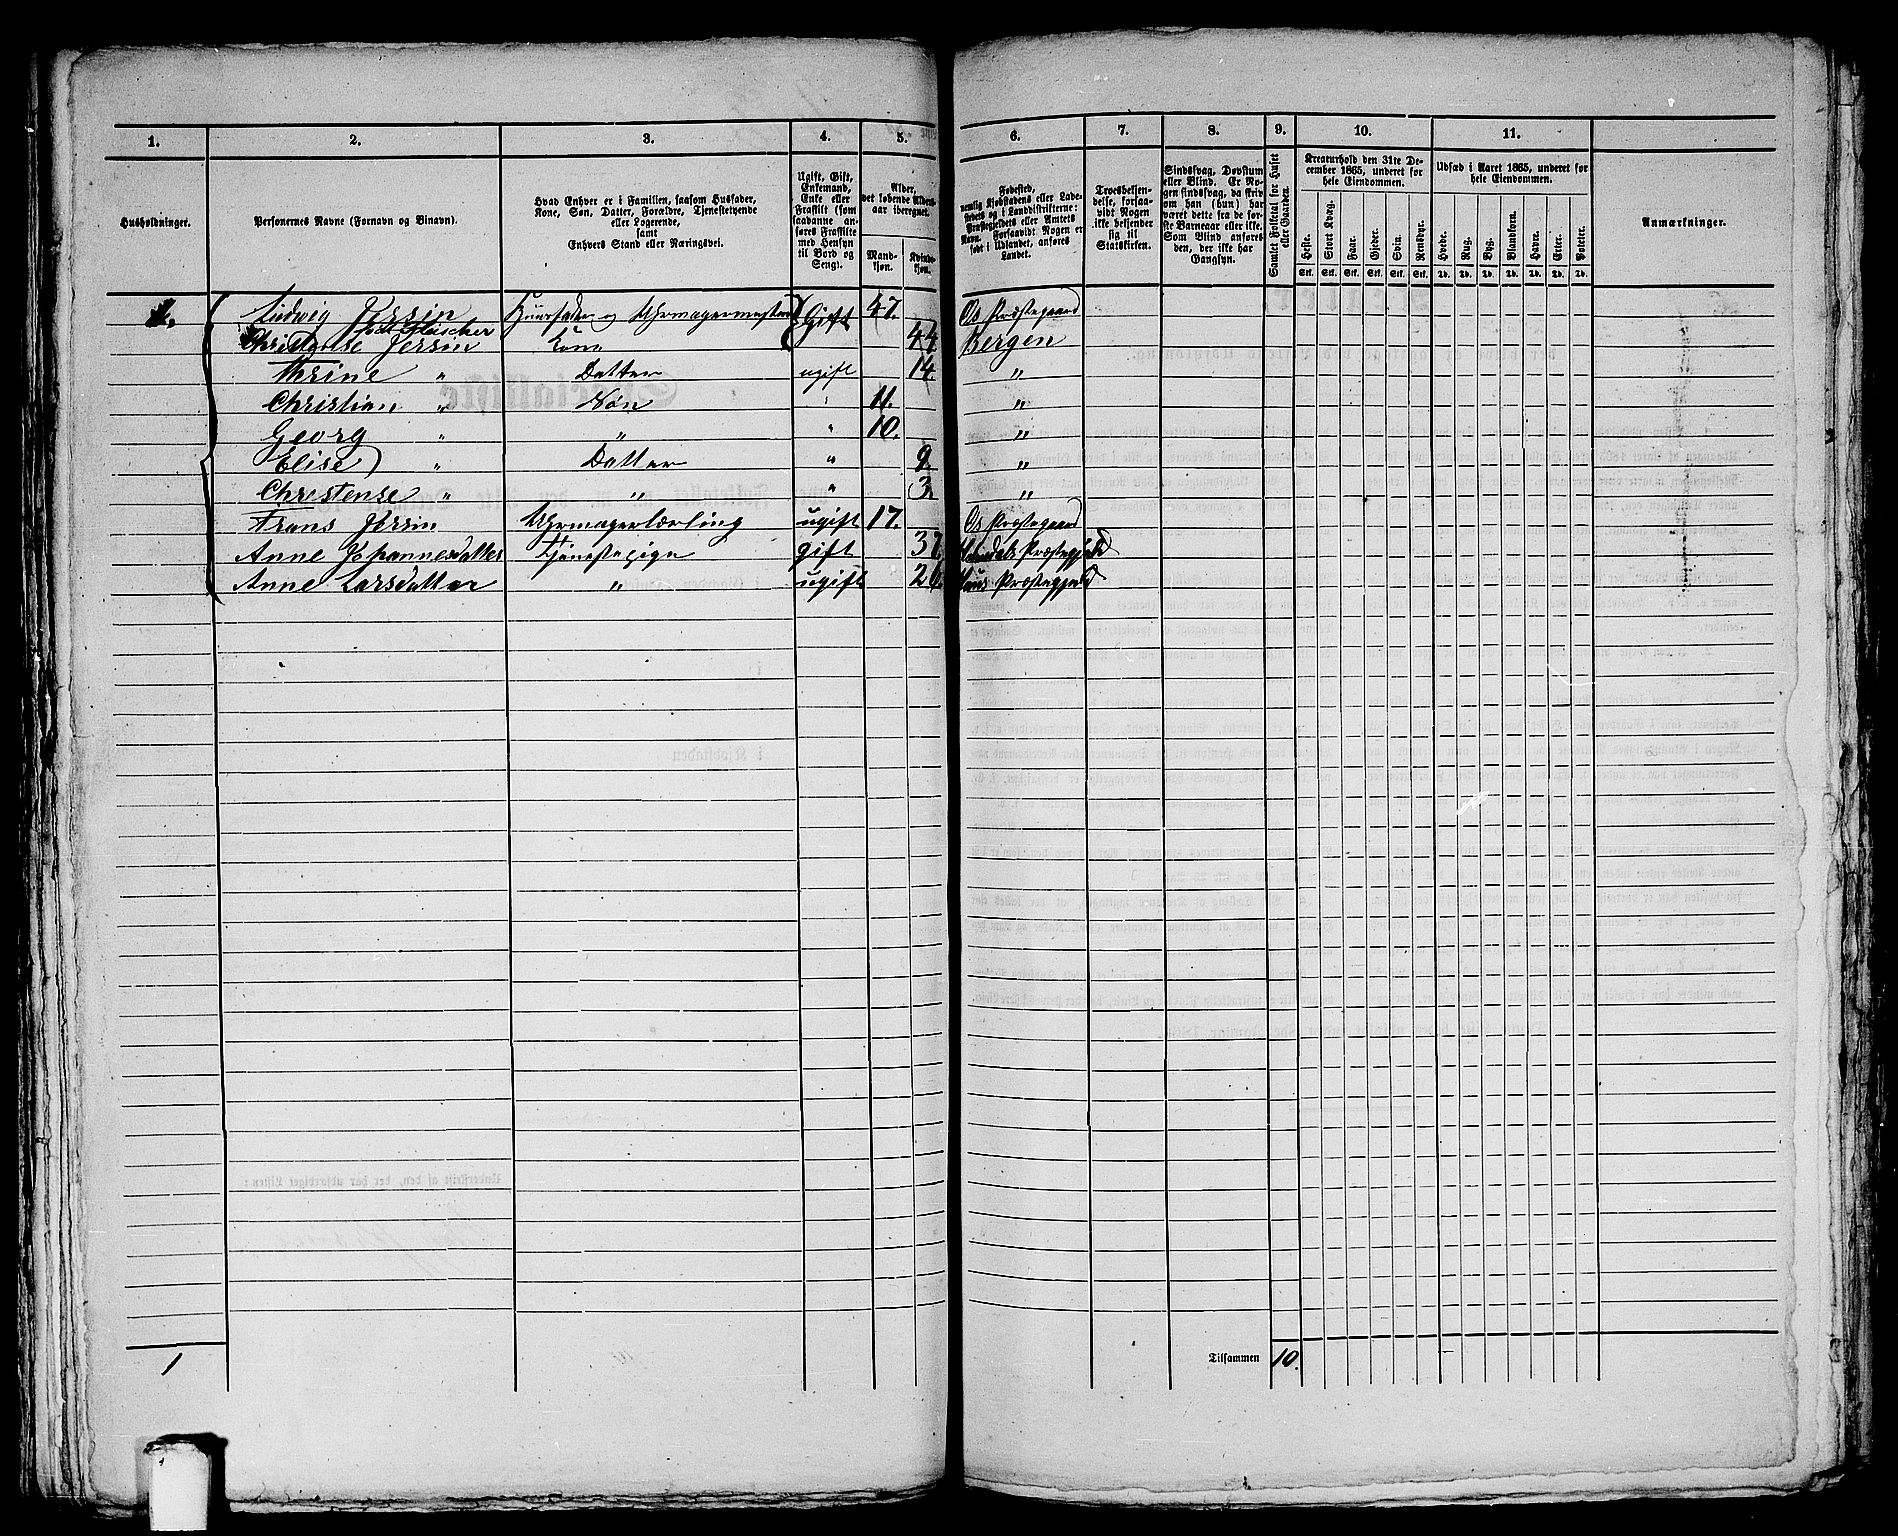 1. 2. 3. 4. 5. 6. 7. 8. 9. 10. 11.
Husholdninger.
Personernes Navne (Fornavn og Binavn).
Hvad Enhver er i Familien, saasom Husfader,
Kone, Søn, Datter, Forældre, Tjenestetyende
eller Logerende,
samt
Enhvers Stand eller Næringsvei.
Ugift, Gift,
Enkemand,
Enke eller
Fraskilt (som
saadanne an-
føres Fraskilte
med Hensyn
til Bord og
Seng).
Alder,
det løbende Alders-
aar iberegnet.
Mand-
kjøn.
Kvinde-
kjøn.
Fødested,
nemlig Kjøbstadens eller Lade-
stedets og i Landdistrikterne:
Præstegjeldets eller Annexets
Navn. Forsaavidt Nogen er
født i Udlandet, anføres
Landet.
Troesbekjen-
delse, forsaa-
vidt Nogen
ikke bekjender
sig til
Statskirken.
Sindssvag, Døvstum
eller Blind. Er No-
gen sindssvag, da skriv
om han (hun) har
været dette fra de før-
ste Barneaar eller ikke.
Som Blind anføres
den, der ikke har
Gangsyn.
Samlet Folketal for Huset
eller Gaarden.
Kreaturhold den 31te De-
cember 1865, underet for
hele Eiendommen.
Heste. Stort Kvæg. Faar. Gjeder. Svin. Rensdyr.
Stk. Stk. Stk. Stk. Stk. Stk.
Udsæd i Aaret 1865, underet for
hele Eiendommen.
Hvede. Rug. Byg. Blandkorn. Havre. Erter. Poteter.
Td. Td. Td. Td. Td. Td. Td.
Anmærkninger.
1. Ludvig Jersin Huusfader og Uhrmagermester Gift 47. Os Præstegaard
Christense Jersin Kone 44 Bergen
Thrine " Datter ugift 14. "
Christian " Søn " 11. "
Georg " " " 10. "
Elise " Datter " 9. "
Christense " " " 3. "
Frans Jersin Uhrmagerlærling ugift 17. Os Præstegaard
Anne Johannesdatter Tjenestepige gift 37. Præstegjeld
Anne Larsdatter " ugift 26. Haus Præstegjeld
1
Tilsammen 10.